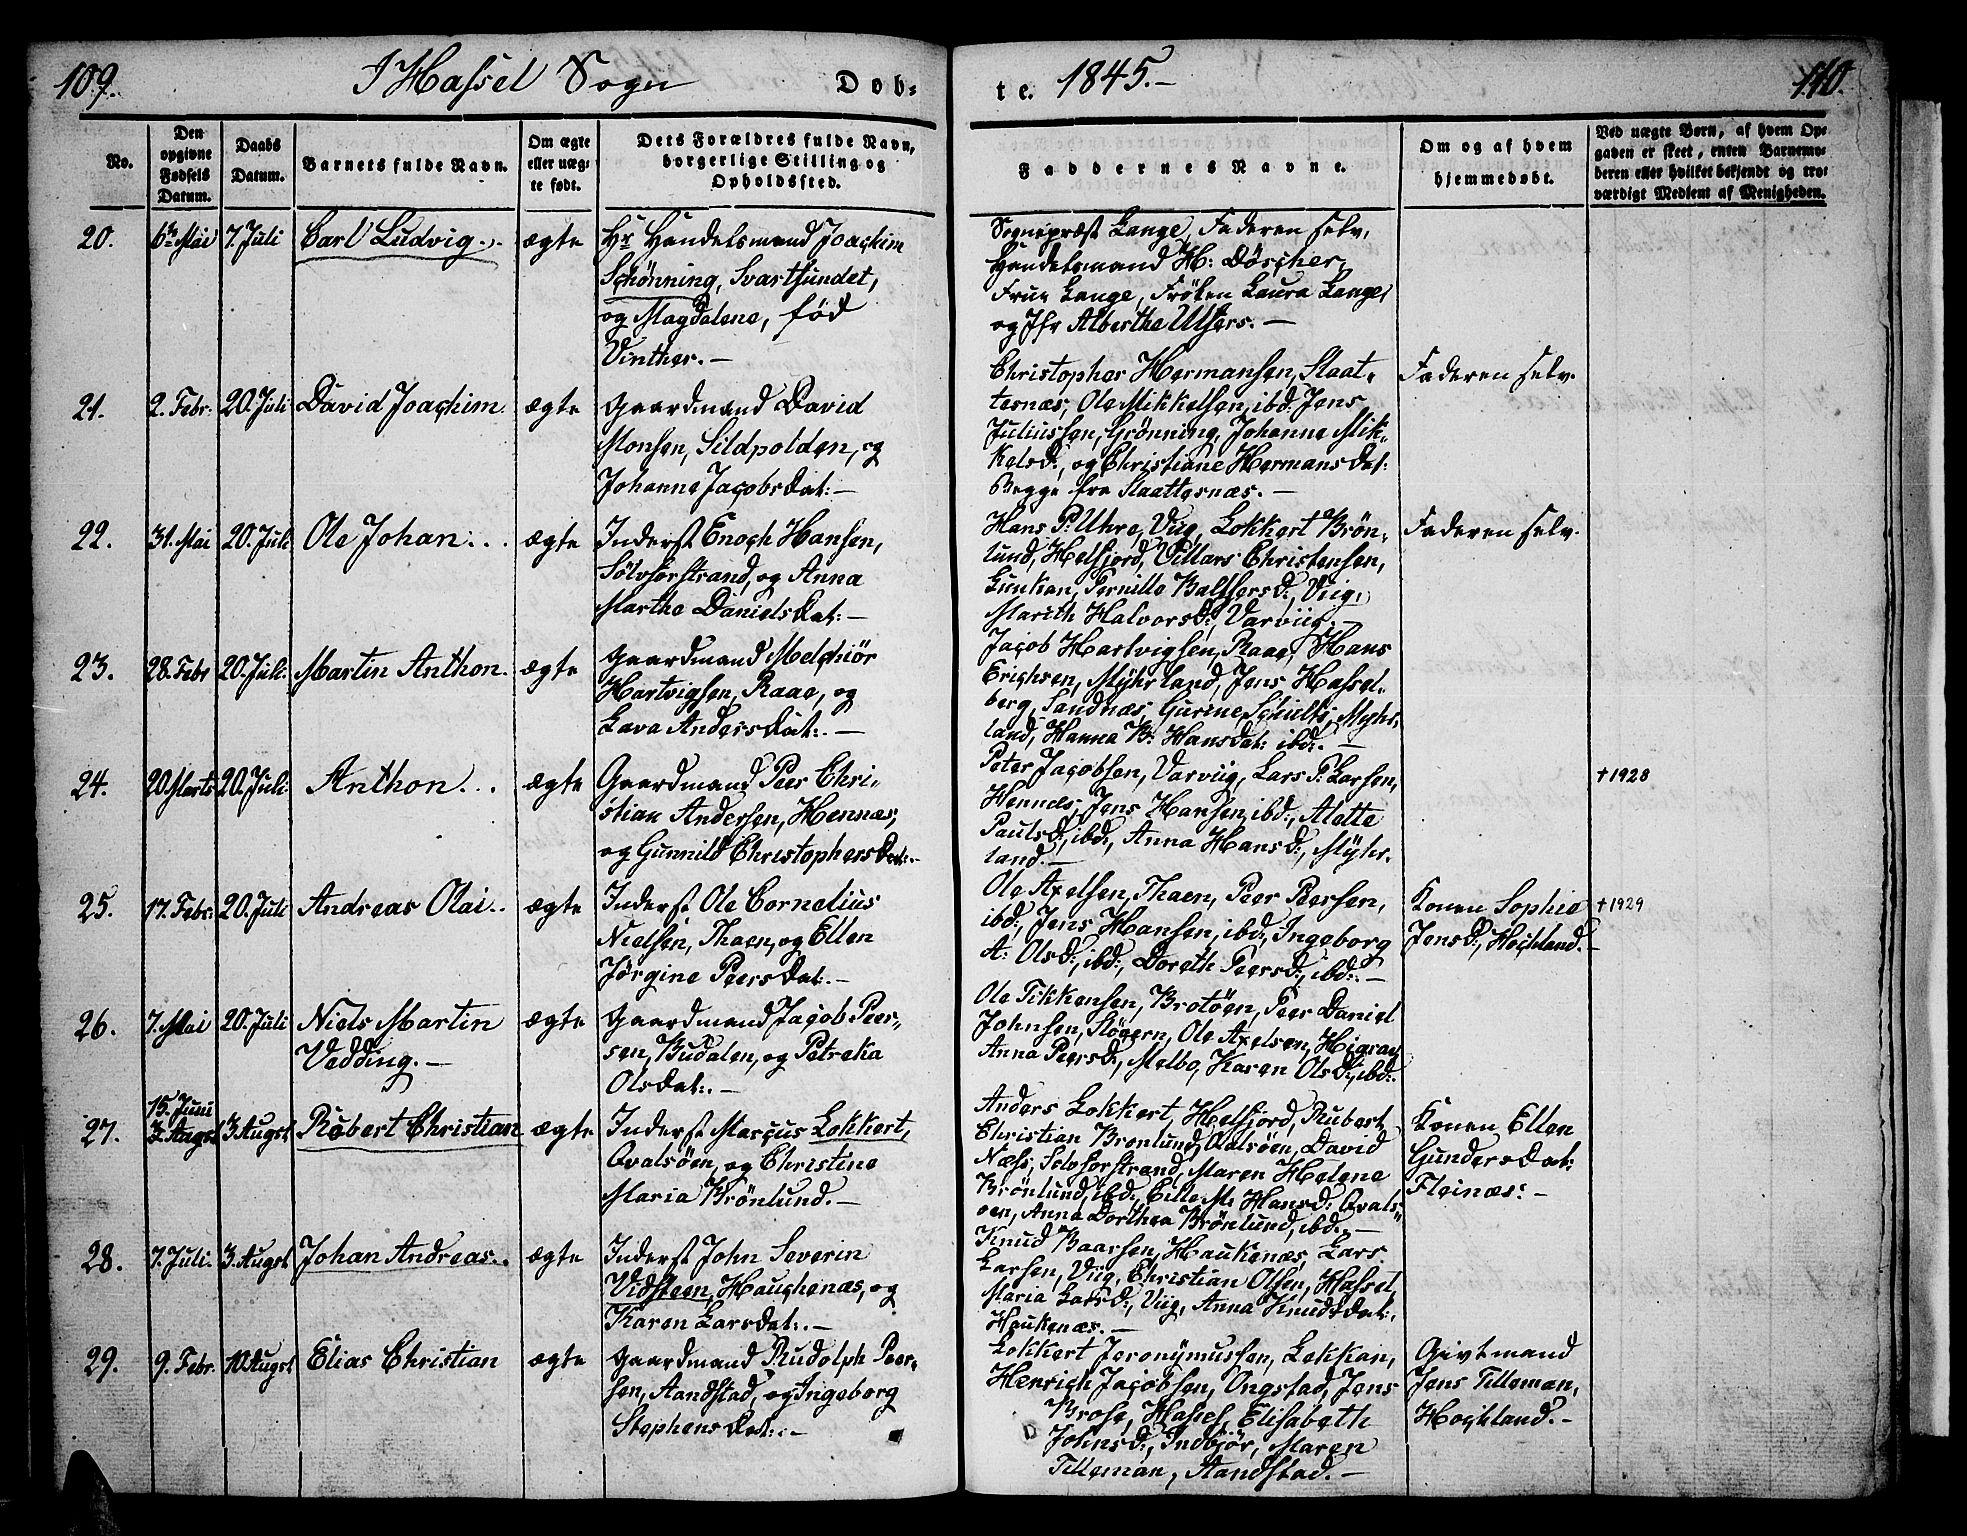 109. I Hassel Sogn Døb-
te. 1845.- 110.
No.
Den opgivne Fødsels Datum.
Daabs Datum.
Barnets fulde Navn.
Om ægte eller uægte født.
Dets Forældres fulde Navn, borgerlige Stilling og Opholdssted.
Faddernes Navne.
Om og af hvem hjemmedøbt.
Ved uægte Børn, af hvem Opgaven er skeet, enten Barnemoderen eller hvilket bekjendt og troværdigt Medlem af Menigheden.
20. 6te Mai 7. Juli Carl Ludvig.. ægte
Hr Handelsmand Joachim
Schønning, Svartsundet,
og Magdalena, fød
Vinther.-
Sognepræst Lange, Faderen selv,
Handelsmand H: Döscher,
Frue Lange, Frøken Laura Lange,
og Jfr Alberthe Ulfers.-
21. 2. Febr: 20. Juli David Joachim. ægte
Gaardmand David
Monsen, Sildpolden, og
Johanna Jacobsdat:-
Christopher Hermansen, Slaat-
ternæs, Ole Mikkelsen, ibd: Jens
Juliussen, Grønning, Johanna Mik-
kelsd:, og Christiane Hermansdat:
Begge fra Slaatternæs.-
Faderen selv.
22. 31. Mai 20. Juli Ole Johan... ægte
Inderst Enoch Hansen,
Sölvforstrand, og Anna
Martha Danielsdat:-
Hans P: Uhre, Viig, Lokkert Brön-
lund, Helfjord, Villars Christensen,
Lunkan, Pernille Balthersd:, Viig,
Marith Halvorsd:, Varviig.-
Faderen selv.
23. 28. Febr 20. Juli. Martin Anthon. ægte
Gaardmand Melchiör
Hartvigsen, Raae, og
Lava Andersdat:.-
Jacob Hartvigsen, Raae, Hans
Erichsen, Myhrland, Jens Hassel-
berg, Sandnæs, Gurine Schults, Myhr-
land, Hanna B: Hansdat: ibd:.-
24. 20. Marts 20. Juli. Anthon... ægte
Gaardmand Peer Chri-
stian Andersen, Hennæs,
og Gunnild Christophersdat:.-
Peter Jacobsen, Varviig, Lars P: Larsen,
Hennæs, Jens Hansen, ibd:, Alette
Paulsd:, ibd:, Anna Hansd:, Myhr-
land.-
† 1928
25. 17. Febr: 20. Juli Andreas Olai.. ægte
Inderst Ole Cornelius
Nielsen, Thaen, og Ellen
Jørgine Peersdat:.-
Ole Axelsen, Thaen, Peer Peersen,
ibd:, Jens Hansen, ibd:, Ingeborg
A: Olsd:, ibd:, Doreth Peersd:, ibd:.-
Konen Sophie
Jensd:, Hochland.-
† 1929
26. 7. Mai 20. Juli Niels Martin
Vedding.- ægte
Gaardmand Jacob Peer-
sen, Budalen, og Petreka
Olsdat:.-
Ole Tikkensen, Brotöen, Peer Daniel
Johnsen, Stövern, Ole Axelsen, Higrav
Anna Peersd:, Melbo, Karen Olsd:, ibd:.
27. 15. Juni
3. Augst 3. Augst Robert Christian ægte
Inderst Marcus Lokkert,
Qvalsöen, og Christine
Maria Brönlund.-
Anders Lokkert, Helfjord, Rubert
Christian Bronlund, Qvalsöen, David
Næss, Sölvforstrand, Maren Helene
Brönlund, ibd:, Cille M: Hansd: Qvals-
öen, Anna Dorthea Brönlund, ibd:.-
Konen Ellen
Gundersdat:
Fleinæs:-
28. 7. Juli. 3. Augst Johan Andreas.. ægte
Inderst John Severin
Vidsteen, Hauchenæs, og
Karen Larsdat:.-
Knud Baarsen, Haukenæs, Lars
Larsen, Viig, Christian Olsen, Hassel,
Maria Larsd:, Viig, Anna Knudsdat:
Haukenæs.-
29. 9. Febr. 10. Augst Elias Christian ægte
Gaardmand Rudolph Peer-
sen, Sandstad, og Ingeborg
Stephensdat:.-
Lokkert Jeronymussen, Lekkan,
Henrich Jacobsen, Ongstad, Jens
Brose, Hassel, Elisabeth
Johnsd:, Indbjör, Maren
Tilleman, Sandstad.-
Givtmand
Jens Tilleman,
Hochland.-